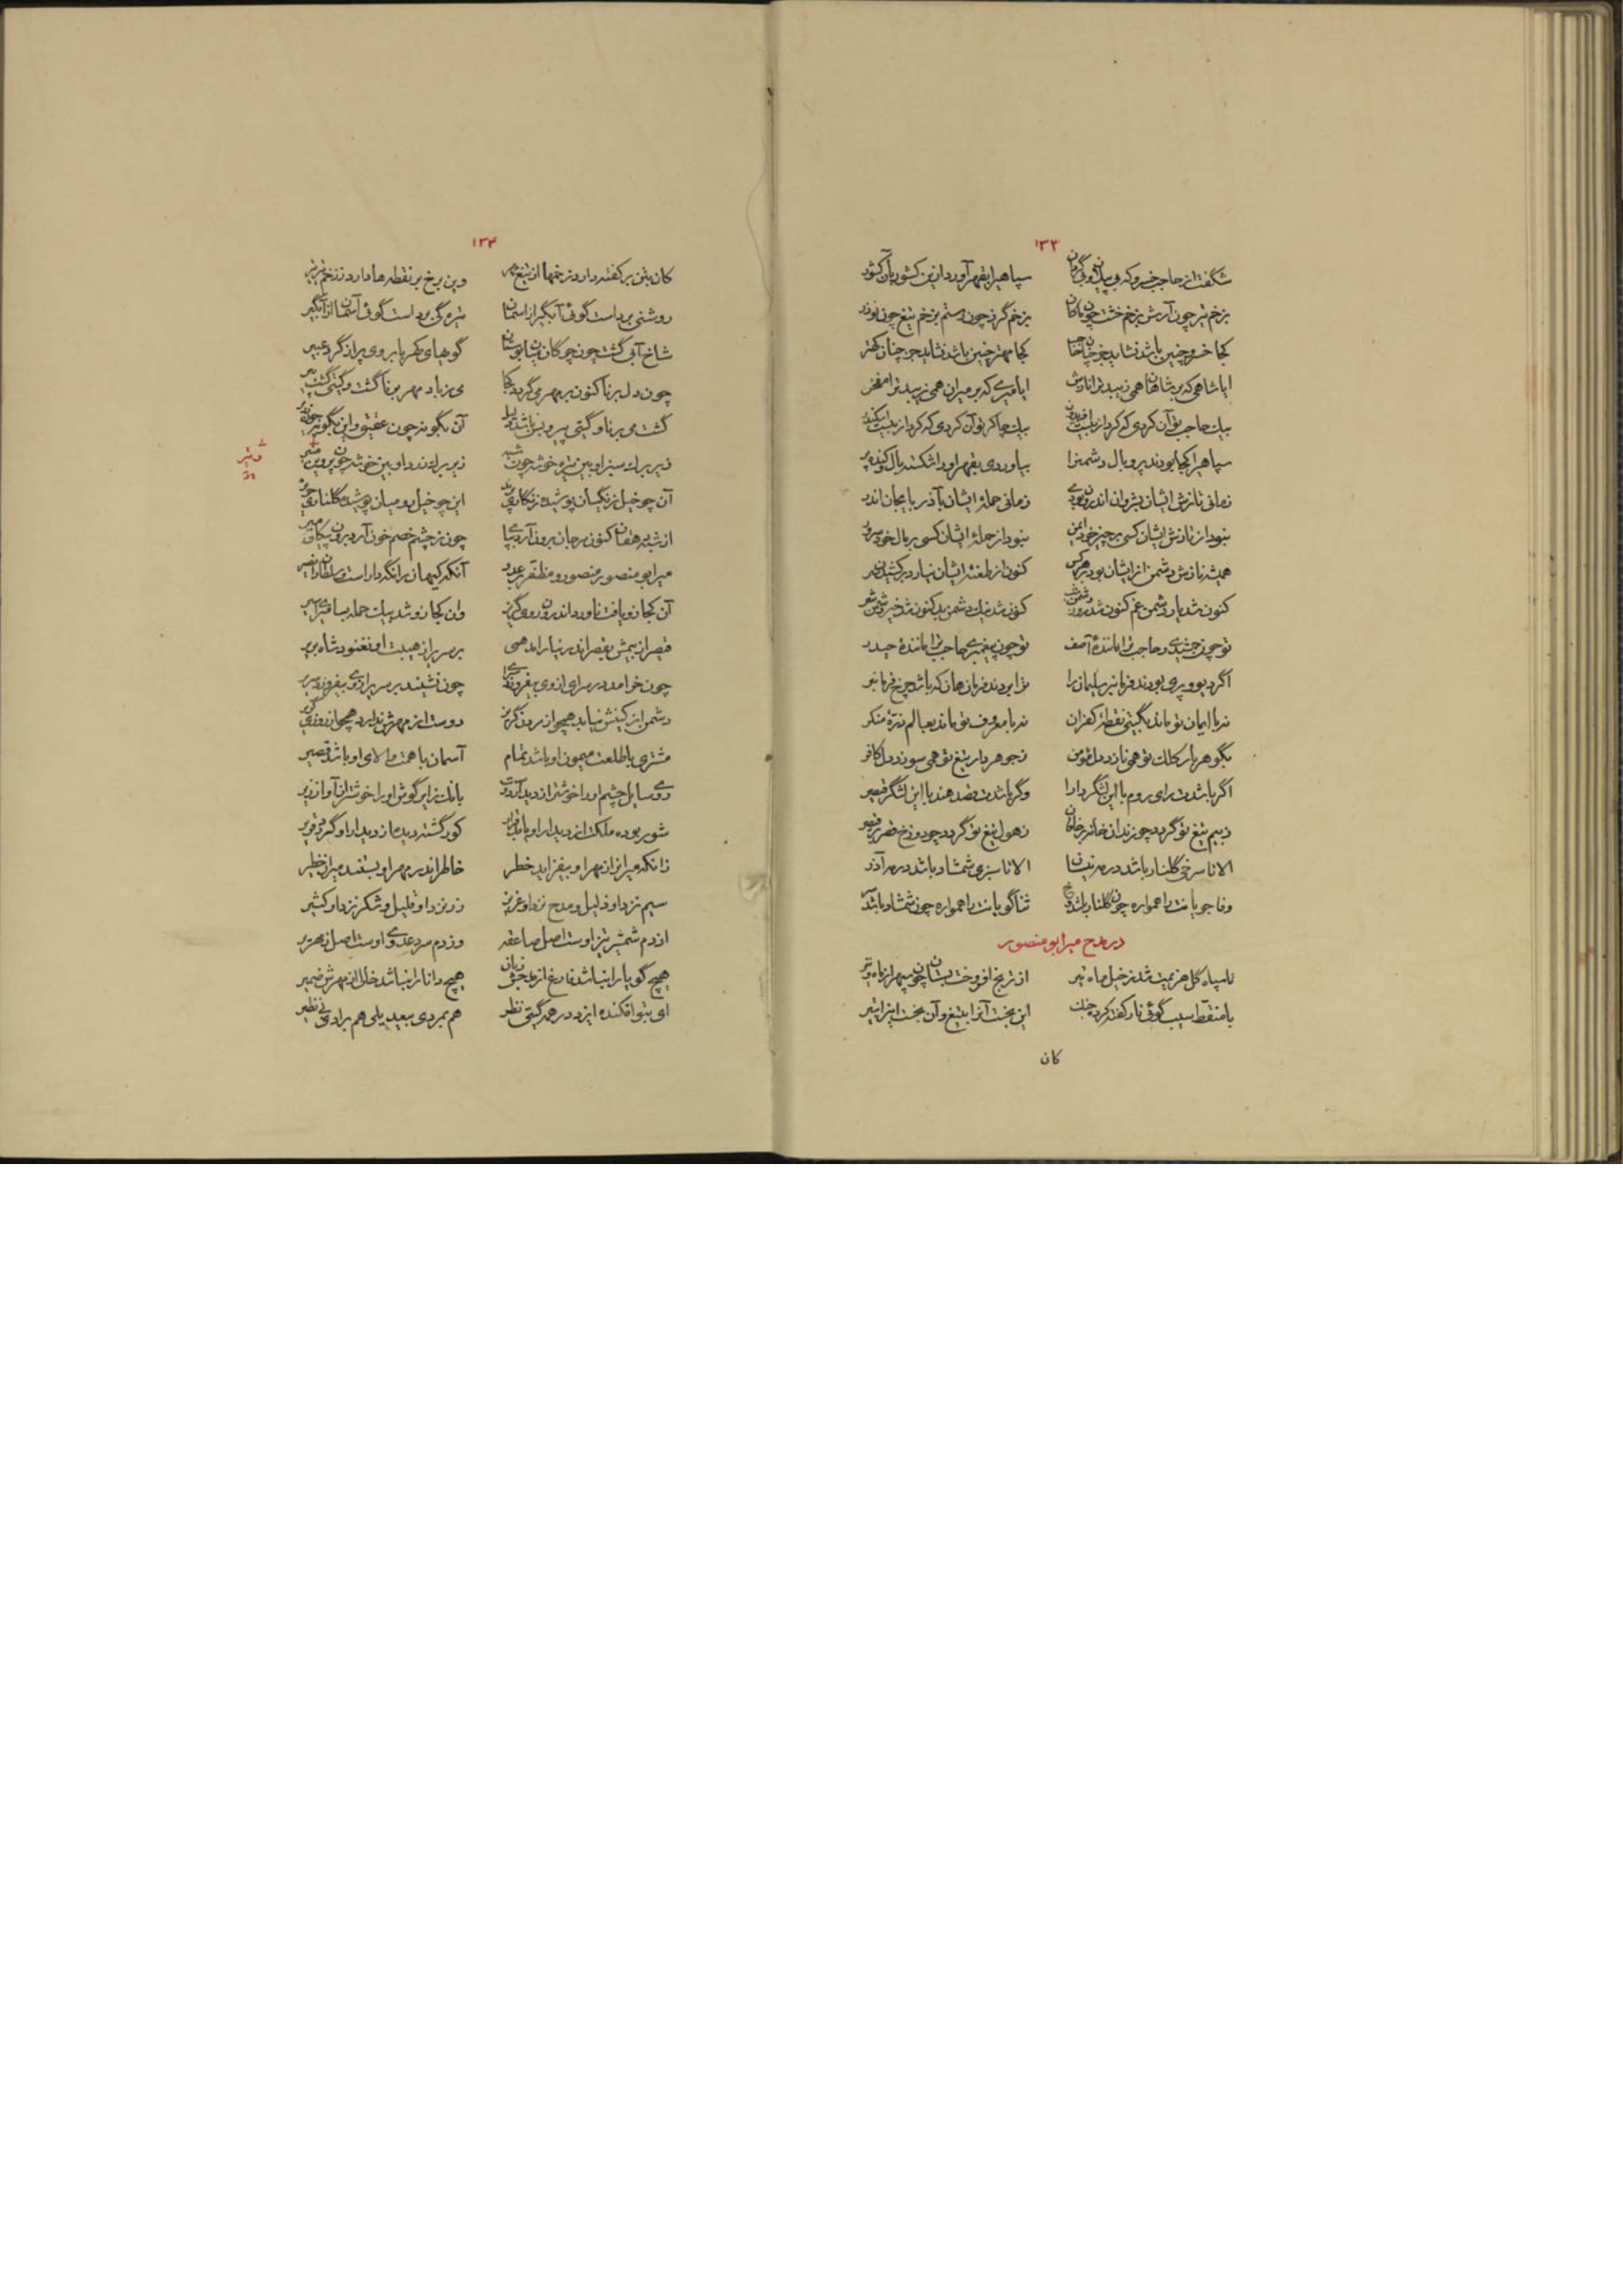 ۱۳۳
شگفت از حاجب خسرو که بی پیل و بی گردان سپاهی را بقهر آورد از این کشور بآن کشور
بزخم تیر چون آرش بزخم خشت چون ماکان بزخم گرز چون رستم بزخم تیغ چون نوذر
کجا خسرو چنین باشد نشاید جز چنان حاجب کجا مهتر چنین باشد نشاید جز چنان کهتر
ایا شاهی که بر شاهان همی زیبد ترا نازش ایا میری که بر میران همی زیبد ترا مفخر
بیک حاجب تو آن کردی که کرد از بیست افریدون بیک چاکر تو آن کردی که کرد از بیست اسکندر
سپاهی را کجا بودند پر و بال دشمن را بیاوردی بقهر او را شکسته بال و کنده پر
زمانی نازش ایشان بشروان اندرون بودی زمانی حملهٔ ایشان بآذربایجان اندر
نبود از نازش ایشان کسی بر چیز خود ایمن نبود از حملهٔ ایشان کسی بر مال خود سرور
همیشه نازش دشمن از ایشان بود بر هر کس کنون از طعنهٔ ایشان نیارد برکشیدن سر
کنون شد یار دشمن غم کنون شد روز دشمن شب کنون شد نیک دشمن بد کنون شد خیر دشمن شر
تو چون جمشیدی و حاجب ترا مانندهٔ آصف تو چون پیغمبری حاجب ترا مانندهٔ حیدر
اگر دیو و پری بودند فرمانبر سلیمان را ترا بردند فرمان هان که باشد چرخ فرمانبر
نه با ایمان تو ماند بگیتی نقطهٔ کفران نه با معروف تو ماند بعالم ذرهٔ منکر
بگوهربار کلک تو همی نازد دل مؤمن ز جوهردار تیغ تو همی سوزد دل کافر
اگر باشدت رای روم با این لشگر دارا وگر باشدت قصد هند با این لشگر قیصر
ز بیم تیغ تو گردد چو زندان خانه بر خاقان ز هول تیغ تو گردد چو دوزخ قصر بر قیصر
الا تا سرخی گلنار باشد در مه نیسان الا تا سبزی شمشاد باشد در مه آذر
وفاجویانت را همواره چون گلنار باشد رخ ثناگویانت را همواره چون شمشاد باشد سر
در مدح میر ابومنصور
تا سپاه گل هزیمت شد ز خیل ماه تیر از ترنج افروخت بستان چون سپهر از ماه و تیر
با منقط سیب گوئی نار کفته کرد جنگ این بجست آنرا بتیغ و آن بجست اینرا بتیر
کان
۱۳۴
کان بتن بر کفته دارد زخمها از تیغ مهر وین برخ بر نقطه ها دارد ز زخم تیر تیر
روشنی بر داست گوئی آبگیر از آسمان تیره گی بر داست گوئی آسمان از آبگیر
شاخ آبی گشت چون چوگان میان بوستان گوهای کهربا بر وی پر از گرد عبیر
چون دل برنا کنون بر مهر می گردد کجا می ز باد مهر برنا گشت و گیتی گشت پیر
گشت می برنا و گیتی پیر و بس باشد دلیل آن بگونه چون عقیق و این بگونه چون زریر
زیر برگ سبز او بین تیره خوشه چون شبه زیر برگ زرد او بین خوشه چون پروین منیر
و تیر
آن چو خیل زنگیان پوشیده زنگاری پرند این چو خیل رومیان پوشیده گلناری حریر
از شبه دهقان کنون مرجان برون آرد بپا چون ز چشم خصم خون آرد برون پیکان میر
میر ابومنصور منصور و مظفر بر عدو آنکه گیهان را نگهدار است و سلطان را نصیر
آن کجا زو یافت ناورد اندرون روی گریز وان کجا زو شد بیک حمله بسا میری اسیر
قیصر از بیمش بقصر اندر نیاراند همی بر سریر از هیبت او نغنود شاه سریر
چون خرامد در سرای از وی بیفروزد سرای چون نشیند بر سریر از وی بیفروزد سریر
دشمن از کینش نیابد هیچ از مردن گریز دوست از مهرش ندارد همچو از روزی گزیر
مشتری با طلعت میمون او باشد ظلام آسمان با همت والای او باشد قصیر
روی سایل چشم او را خوشتر از دیدار دوست بانگ زایر گوش او را خوشتر از آواز زیر
شور بوده مملکت از دیدار او یابد قرار کور گشته دیده از دیدار او گردد قریر
زانکه میران را ز مهر او بیفزاید خطر خاطر اندر مهر او بستند میران خطیر
سیم نزد او ذلیل و مدح نزد او عزیز زر نزد او قلیل و شکر نزد او کثیر
از دم شمشیر تیز اوست اصل صاعقه وز دم سرد عدوی اوست اصل زمهریر
هیچ گویا را نباشد فارغ از مدحش زبان هیچ دانا را نباشد خالی از مهرش ضمیر
ای بتو افکنده ایزد در همه گیتی نظر هم بمردی بی‌بدیلی هم برادی بی نظیر